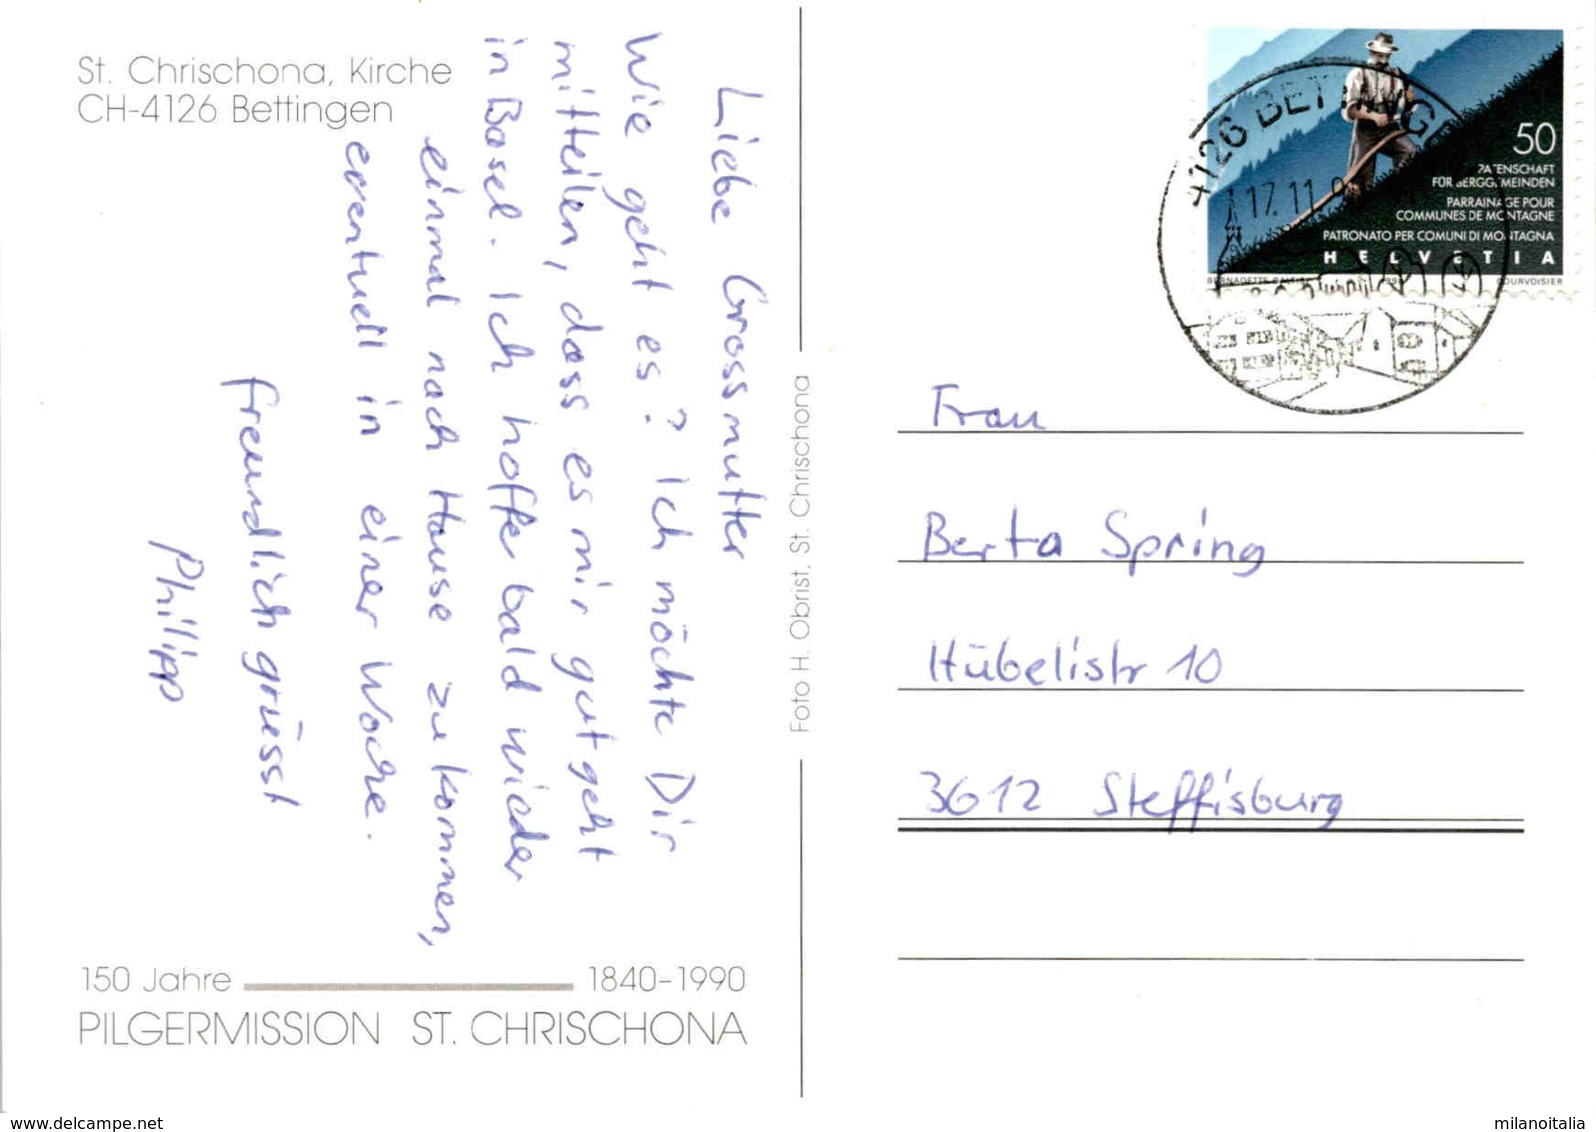 St. Chrischona, Kirche
CH-4126 Bettingen
Liebe Grossmutter
Wie geht es? Ich möchte Dir
mitteilen, dass es mir gut geht
in Basel. Ich hoffe bald wieder
einmal nach Hause zu kommen,
eventuell in einer Woche.
freundlich grüsst
Philipp
150 Jahre 1840-1990
PILGERMISSION ST. CHRISCHONA
Foto H. Obrist, St. Chrischona
50
PATENSCHAFT
FÜR BERGGEMEINDEN
PARRAINAGE POUR
COMMUNES DE MONTAGNE
PATRONATO PER COMUNI DI MONTAGNA
HELVETIA
COURVOISIER
4126 BETTINGEN
17.11.9
Frau
Berta Spring
Hübelistr 10
3612 Steffisburg
www.delcampe.net
milanoitalia